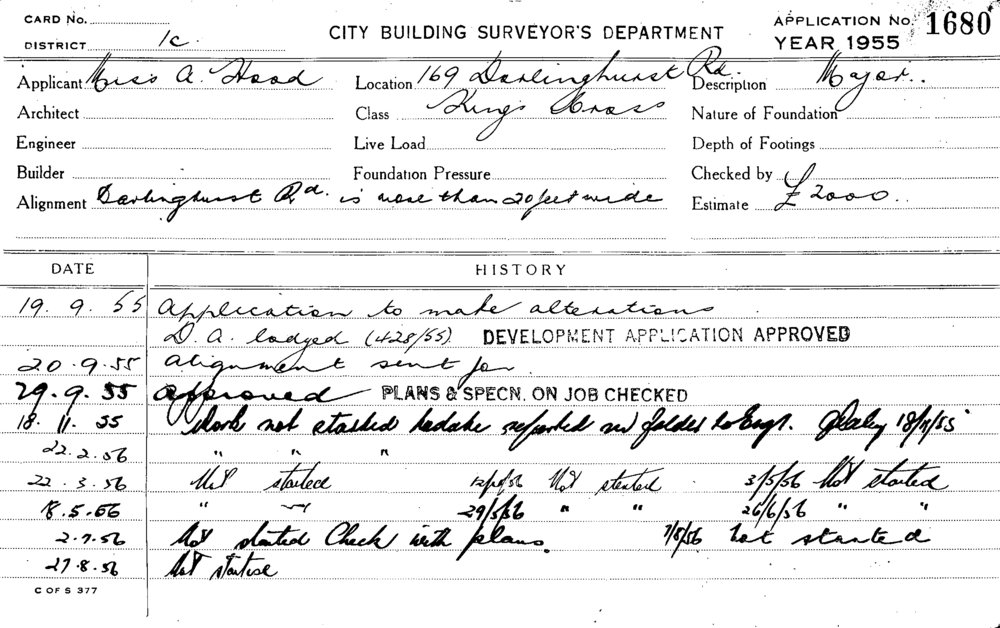 CARD No.
DISTRICT 1c.
CITY BUILDING SURVEYOR'S DEPARTMENT
APPLICATION No. 1680
YEAR 1955
Applicant Miss A. Hood Location 169 Darlinghurst Rd. Description Major..
Architect Class Kings Cross Nature of Foundation
Engineer Live Load Depth of Footings
Builder Foundation Pressure Checked by
Alignment Darlinghurst Rd. is more than 20 feet wide Estimate £2000
DATE HISTORY
19. 9. 55 Application to make alterations
D. A. lodged (428/55) DEVELOPMENT APPLICATION APPROVED
20.9.55 Alignment sent for
29.9.55 Approved PLANS & SPECN. ON JOB CHECKED
18. 11. 55 Work not started reported folder to 18/11/55
22.2.56 " " "
22.3.56 Not started Not started 3/5/56 Not started
18.5.56 " " 29/5/56 " " 26/6/56 " "
2.7.56 Not started Check with plans. 7/8/56 not started
27.8.56 Not
C OF S 377